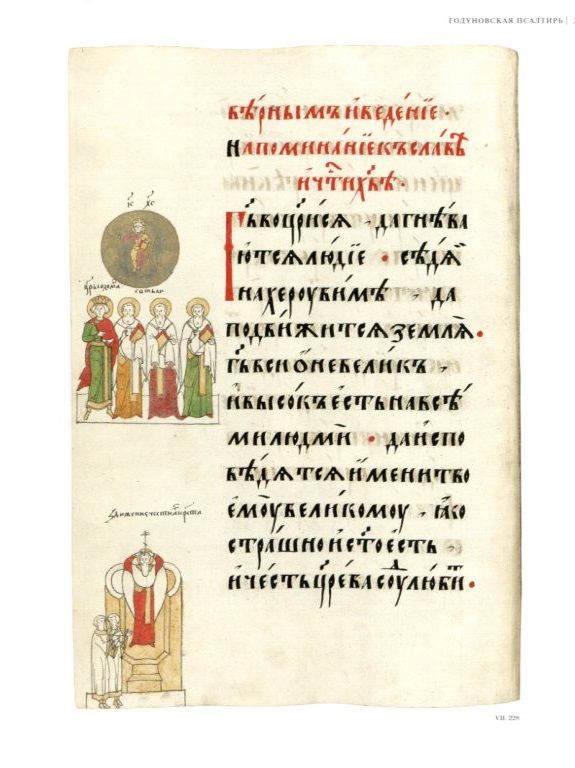 ГОДУНОВСКАЯ ПСАЛТИРЬ
вѣрнымъ и введенїе ·
напоминанїе къ славѣ
и ч҃тı х҃вѣ ·
Г҃ь воцр҃ися · да гнѣва
ютсѧ людїе · сѣдѧ
на хероувимѣ · да
подвижитсѧ землѧ ·
г҃ь в сионе великъ ·
и высокъ есть на всѣ
ми людми · да испо
вѣдѧтсѧ имени тво
емоу великомоу · ꙗко
страшно и ст҃о есть ·
и честь цр҃ева соуⷣ любиⷮ ·
іс҃ х҃с
VII. 228